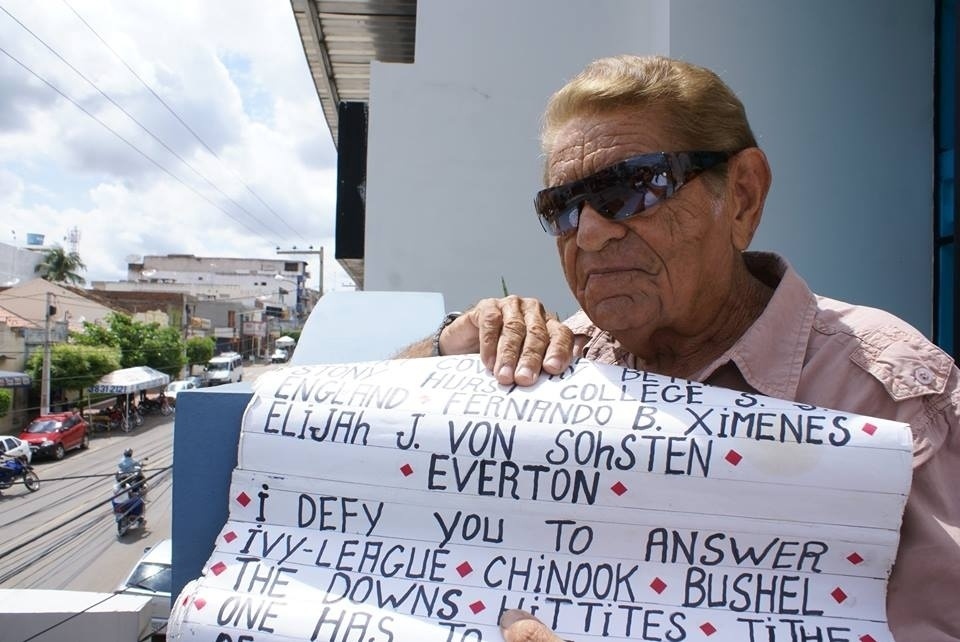 STONY HURS COLLEGE S.
ENGLAND ♦ FERNANDO B. XiMENES ♦
ELiJAh J. VON SOhSTEN ♦
♦ EVERTON ♦
♦ i DEFY YOU TO ANSWER ♦
♦ iVY-LEAGUE ♦ CHiNOOK ♦ BUSHEL ♦
♦ THE DOWNS ♦ HiTTiTES ♦ TiTHE
♦ ONE HAS TO